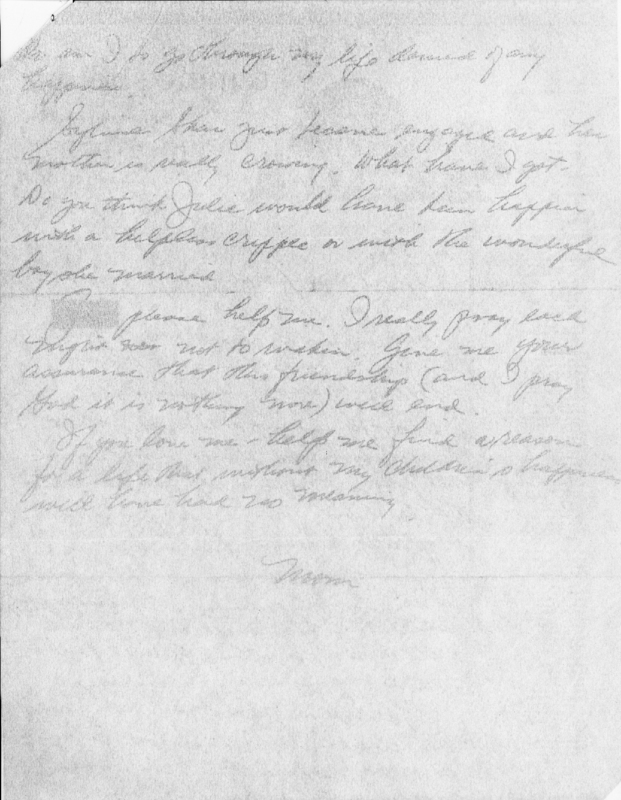 Or am I to go through my life denied of any
happiness.
Shaw just became engaged and her
mother is really crowing. What have I got -
Do you think Julie would have been happier
with a helpless cripple or with the wonderful
boy she married
please help me. I really pray each
night not to waken. Give me your
assurance that this friendship (and I pray
God it is nothing more) will end.
If you love me - help me find a reason
for a life that without my children's happiness
will have had no meaning.
Mom